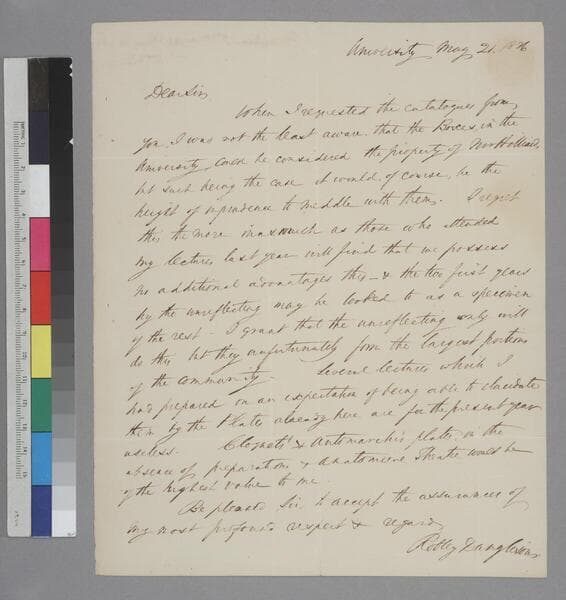 University May 21. 1826
Dear Sir,
When I requested the catalogues from
you I was not the least aware, that the Boxes, in the
University, could be considered the property of Mr Hilliard,
but such being the case it would, of course, be the
height of imprudence to meddle with them. I regret
this the more inasmuch as those who attended
my lectures last year will find that we possess
no additional advantages this - & the two first years
by the unreflecting may be looked to as a specimen
of the rest - I grant that the unreflecting only will
do this but they unfortunately form the largest portions
of the community. Several lectures which I
had prepared on an expectation of being able to elucidate
them by the Plates already here are for the present year
useless. Cloquet's & Antomarchi's plates, in the
absence of preparations & anatomical Theatre would be
of the highest value to me.
Be pleased Sir, to accept the assurances of
my most profound respect & regard
Robley Dunglison